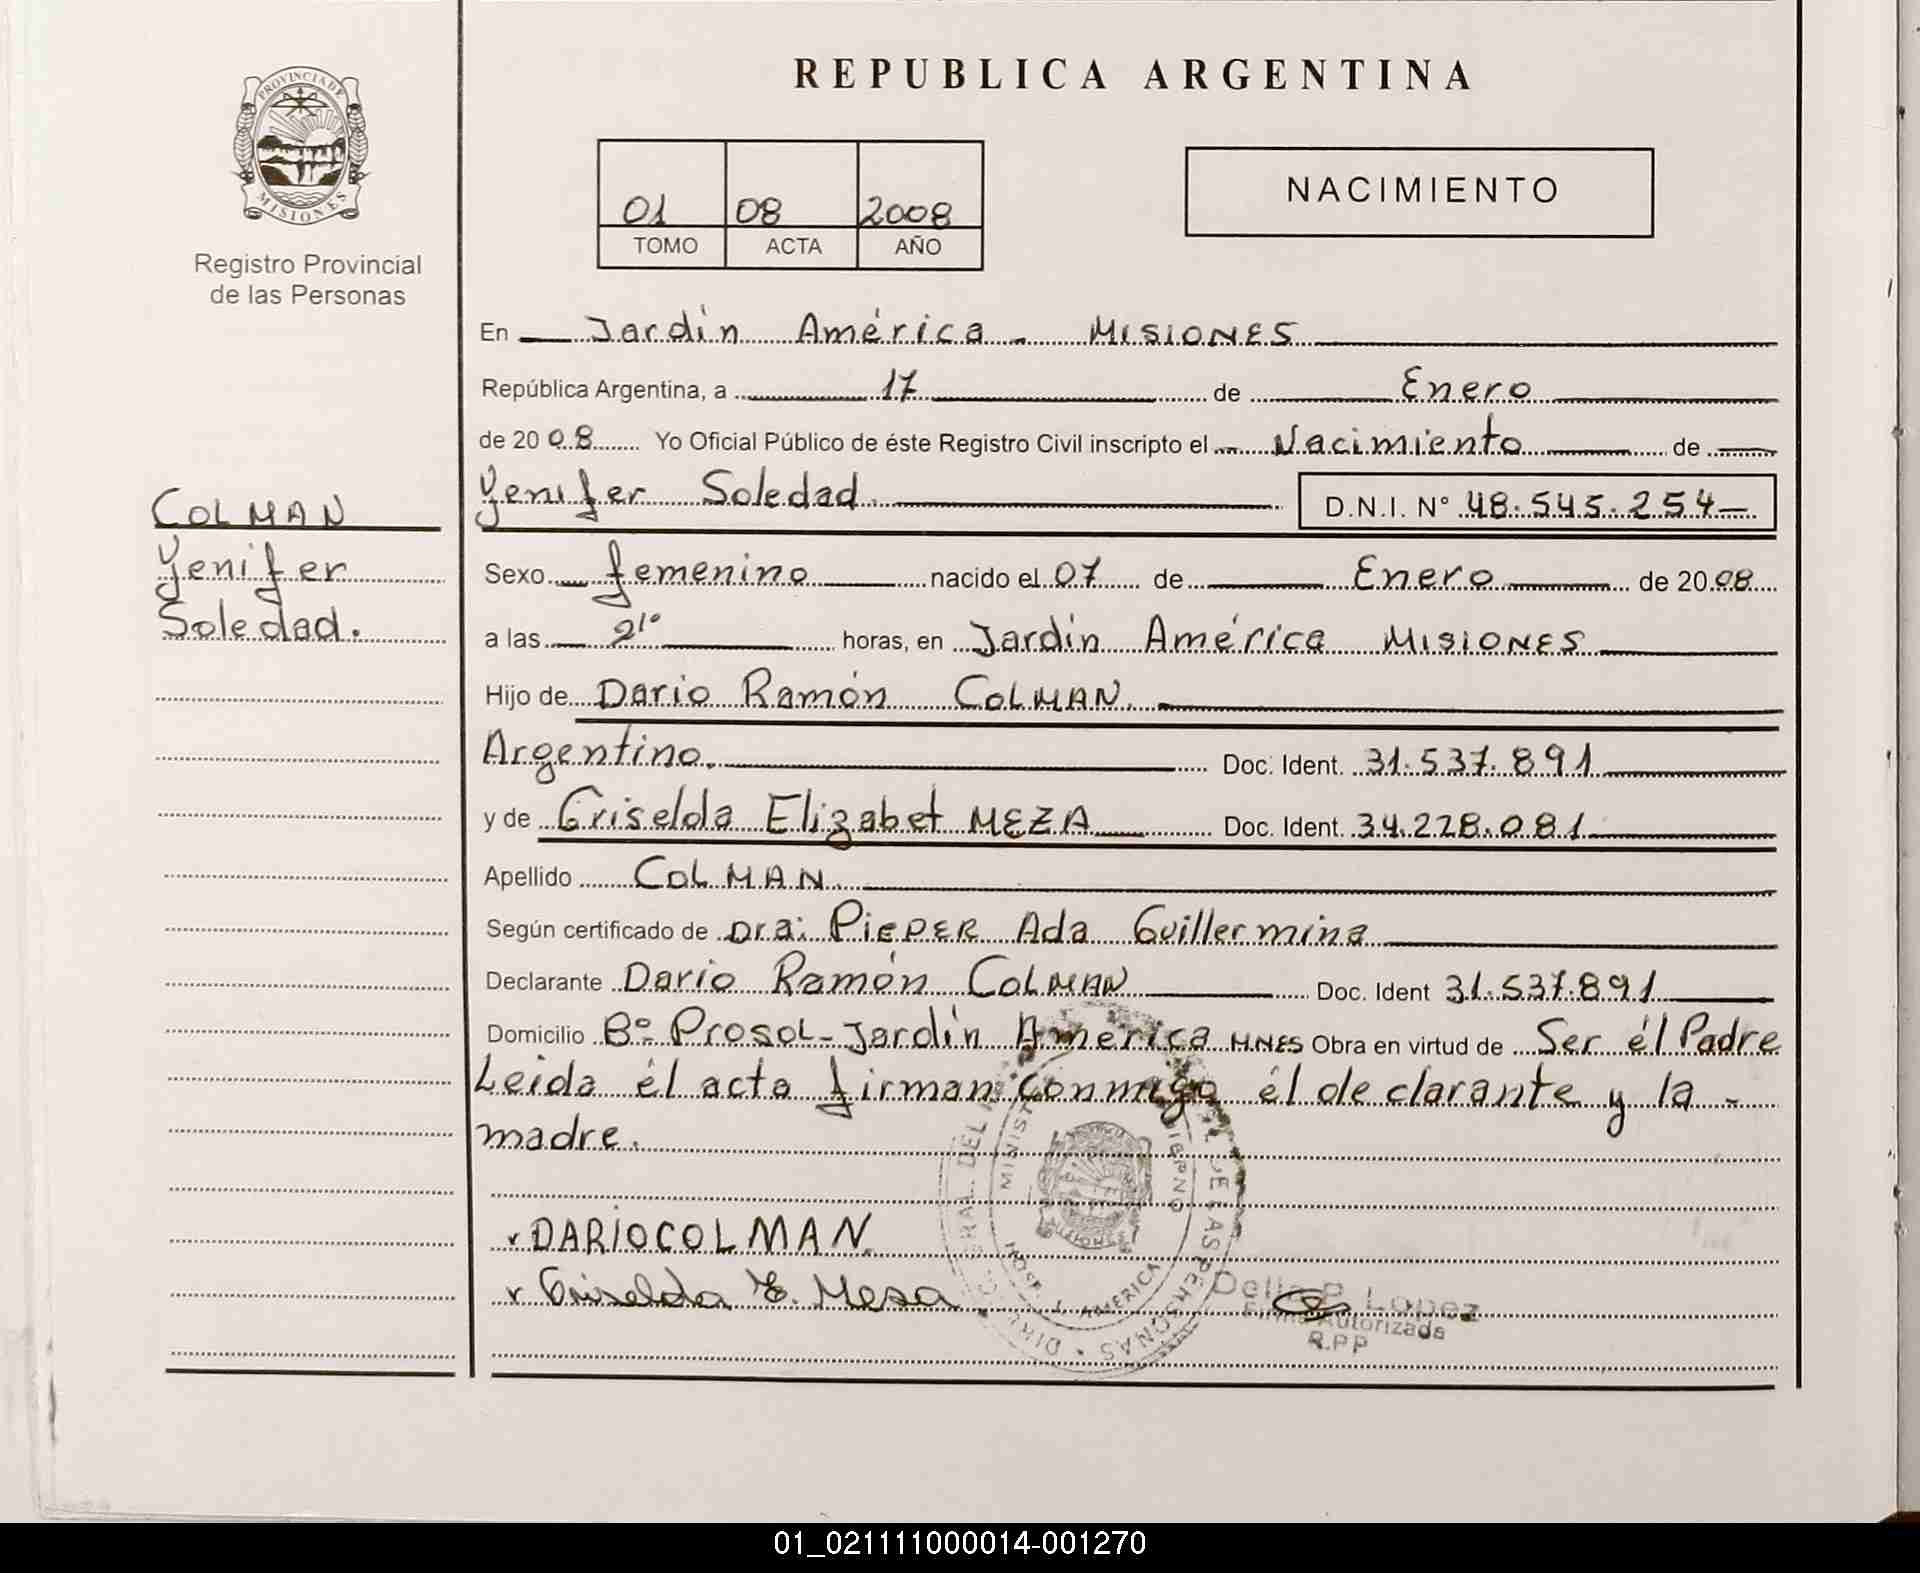 REPUBLICA ARGENTINA
PROVINCIA DE
MISIONES
Registro Provincial
de las Personas
01 08 2008
TOMO ACTA AÑO
NACIMIENTO
En Jardín América - MISIONES
República Argentina, a 17 de Enero
de 2008 Yo Oficial Público de éste Registro Civil inscripto el Nacimiento de
Yenifer Soledad. D.N.I. N° 48.545.254
COLMAN
Yenifer
Soledad.
Sexo femenino nacido el 07 de Enero de 2008
a las 21¹⁰ horas, en Jardín América MISIONES
Hijo de Dario Ramón COLMAN.
Argentino. Doc. Ident. 31.537.891
y de Griselda Elizabet MEZA Doc. Ident. 34.228.081
Apellido COLMAN.
Según certificado de Dra: PIEPER Ada Guillermina
Declarante Dario Ramón COLMAN Doc. Ident 31.537.891
Domicilio B°- PROSOL - Jardín América MNES Obra en virtud de Ser él Padre
Leida él acta firman conmigo él declarante y la -
madre.
DARÍO COLMAN
Griselda E. Mesa
DE LAS PERSONAS
MISIONES
AMERICA
Lopez
Firma Autorizada
R.P.P
01_021111000014-001270